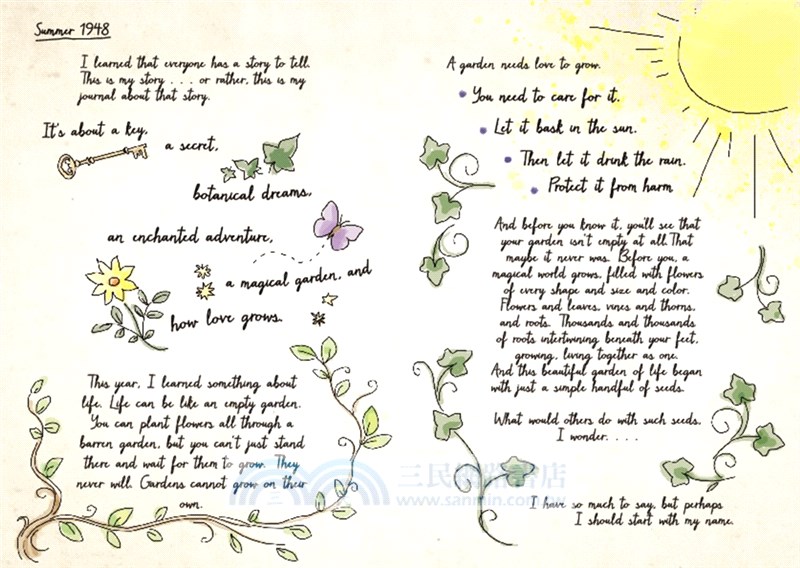 Summer 1948
I learned that everyone has a story to tell.
This is my story . . . or rather, this is my
journal about that story.
It's about a key,
a secret,
botanical dreams,
an enchanted adventure,
a magical garden, and
how love grows.
This year, I learned something about
life. Life can be like an empty garden.
You can plant flowers all through a
barren garden, but you can't just stand
there and wait for them to grow. They
never will. Gardens cannot grow on their
own.
A garden needs love to grow.
You need to care for it.
Let it bask in the sun.
Then let it drink the rain.
Protect it from harm
And before you know it, you'll see that
your garden isn't empty at all. That
maybe it never was. Before you, a
magical world grows, filled with flowers
of every shape and size and color.
Flowers and leaves, vines and thorns,
and roots. Thousands and thousands
of roots intertwining beneath your feet,
growing, living together as one.
And this beautiful garden of life began
with just a simple handful of seeds.
What would others do with such seeds,
I wonder. . . .
I have so much to say, but perhaps
I should start with my name.
三民網路書店
www.sanmin.com.tw